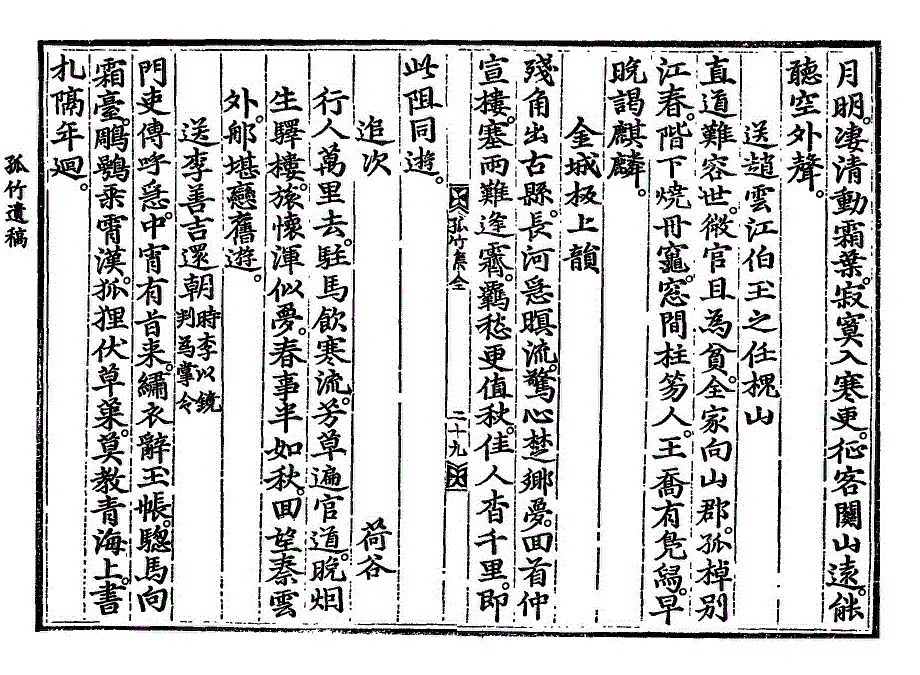 月明。凄清動霜葉。寂寞入寒更。征客關山遠。能
聽空外聲。
送趙雲江伯玉之任槐山
直道難容世。微官且為貧。全家向山郡。孤棹別
江春。階下燒丹竈。窓間柱笏人。王喬有鳧舄。早
晚謁麒麟。
金城板上韻
殘角出古縣。長河急暝流。驚心楚鄉夢。回首仲
宣樓。塞雨難逢霽。羈愁更值秋。佳人杳千里。卽
此阻同遊。
孤竹集全
二十九
追次 荷谷
行人萬里去。駐馬飲寒流。芳草遍官道。晩烟
生驛樓。旅懷渾似夢。春事半如秋。回望秦雲
外。那堪戀舊遊。
送李善吉還朝 時李以鏡判為掌令
門吏傳呼急。中宵有旨來。繡衣辭玉帳。驄馬向
霜臺。鵰鶚乘霄漢。狐狸伏草萊。莫教青海上。書
札隔年迴。
孤竹遺稿